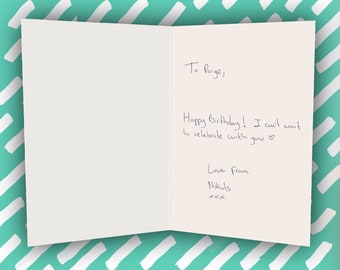 To Paige,
Happy Birthday! I can't wait
to celebrate with you ♡
Love from
Nikols
xxx